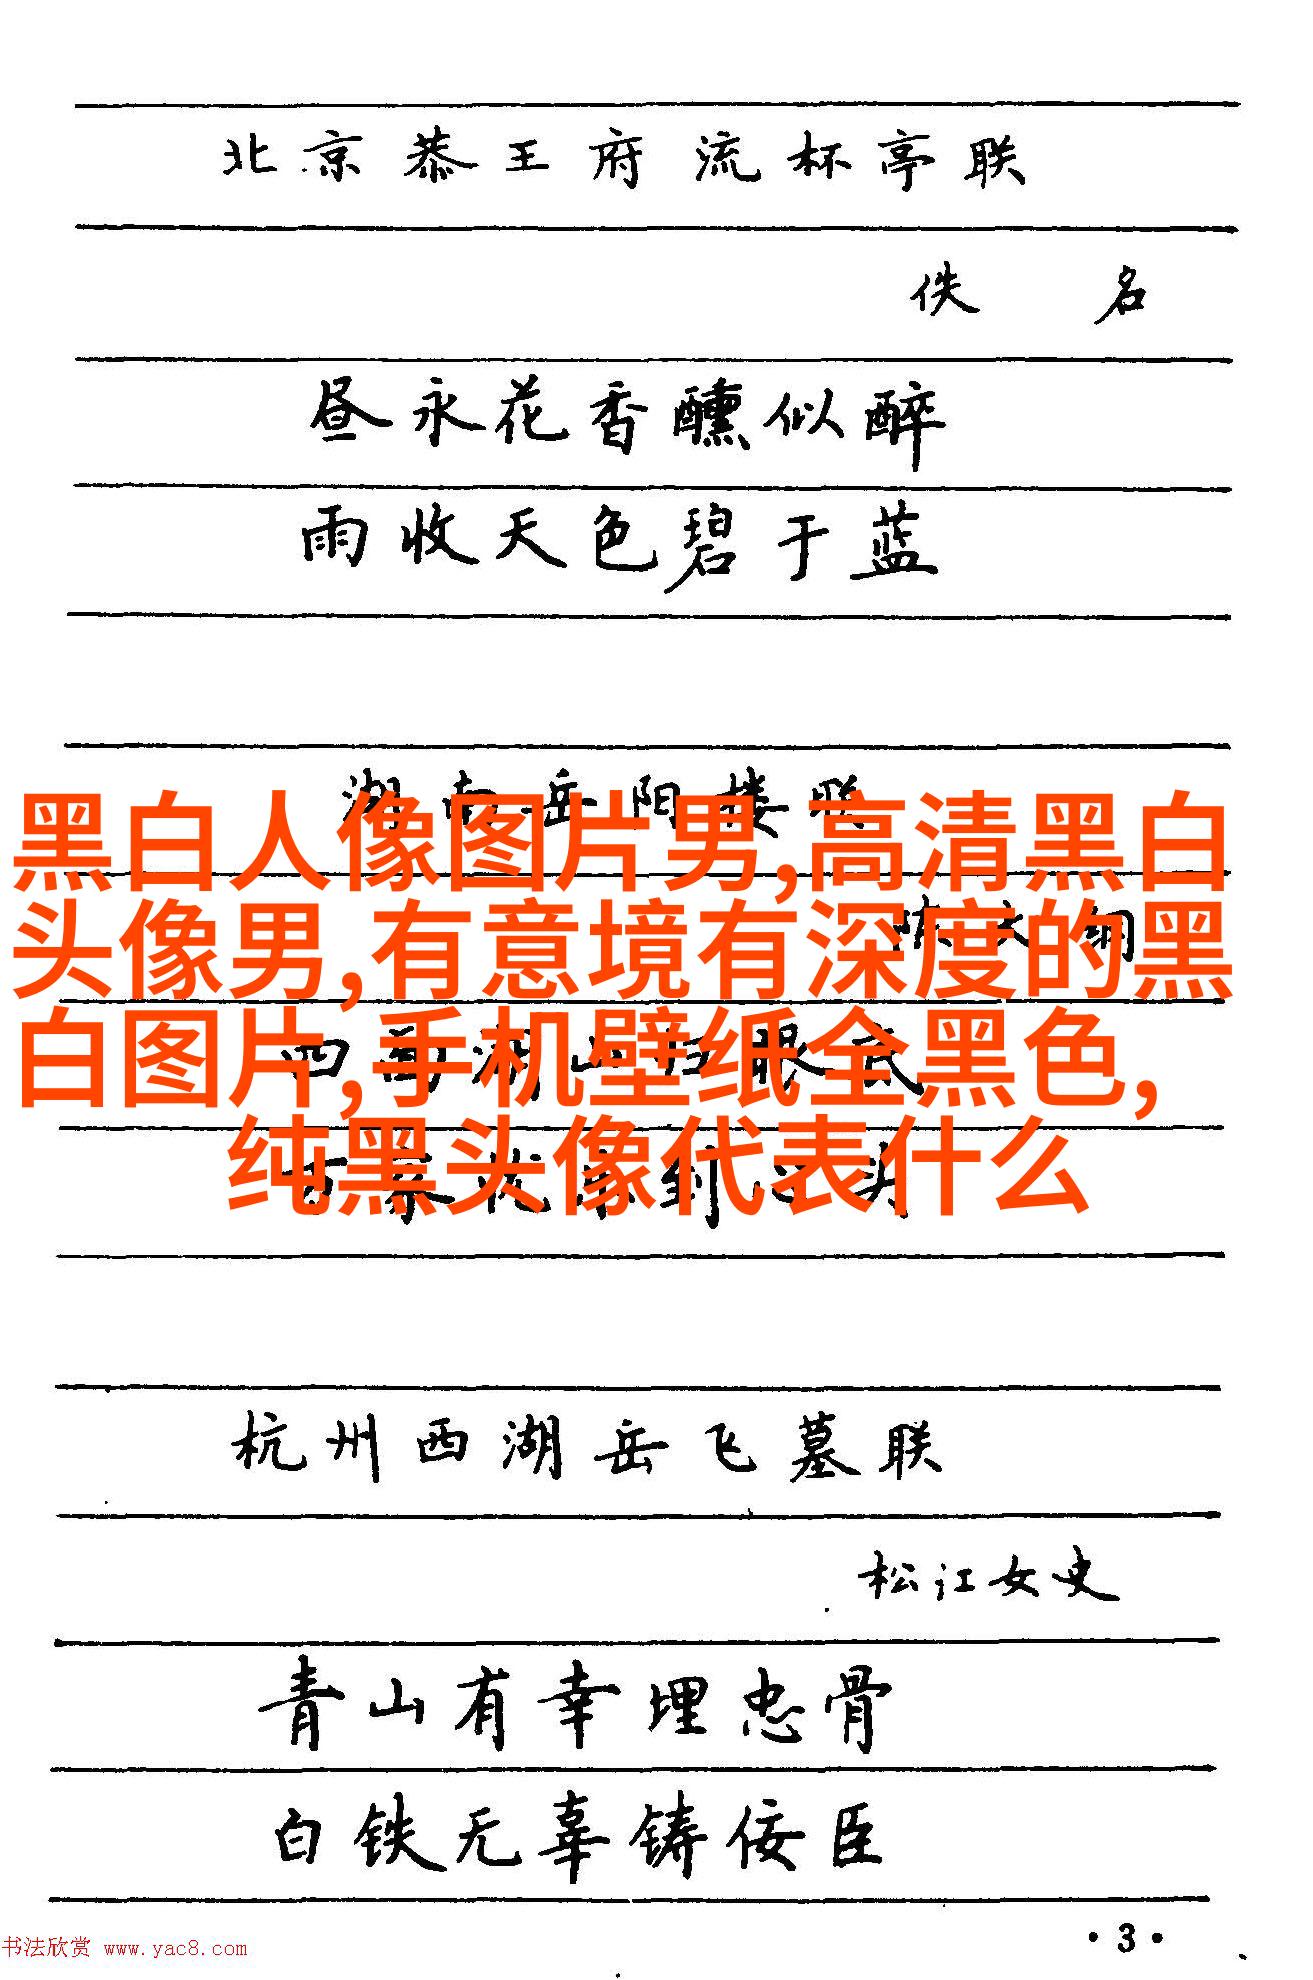 北京恭王府流杯亭联
佚名
昼永花香醺似醉
雨收天色碧于蓝
湖南岳阳楼联
黑白人像图片男,高清黑白
头像男,有意境有深度的黑
四面湖山归眼底
白图片,手机壁纸全黑色,
纯黑头像代表什么
到心头
杭州西湖岳飞墓联
松江女史
青山有幸埋忠骨
白铁无辜铸佞臣
·3·
书法欣赏 www.yac8.com